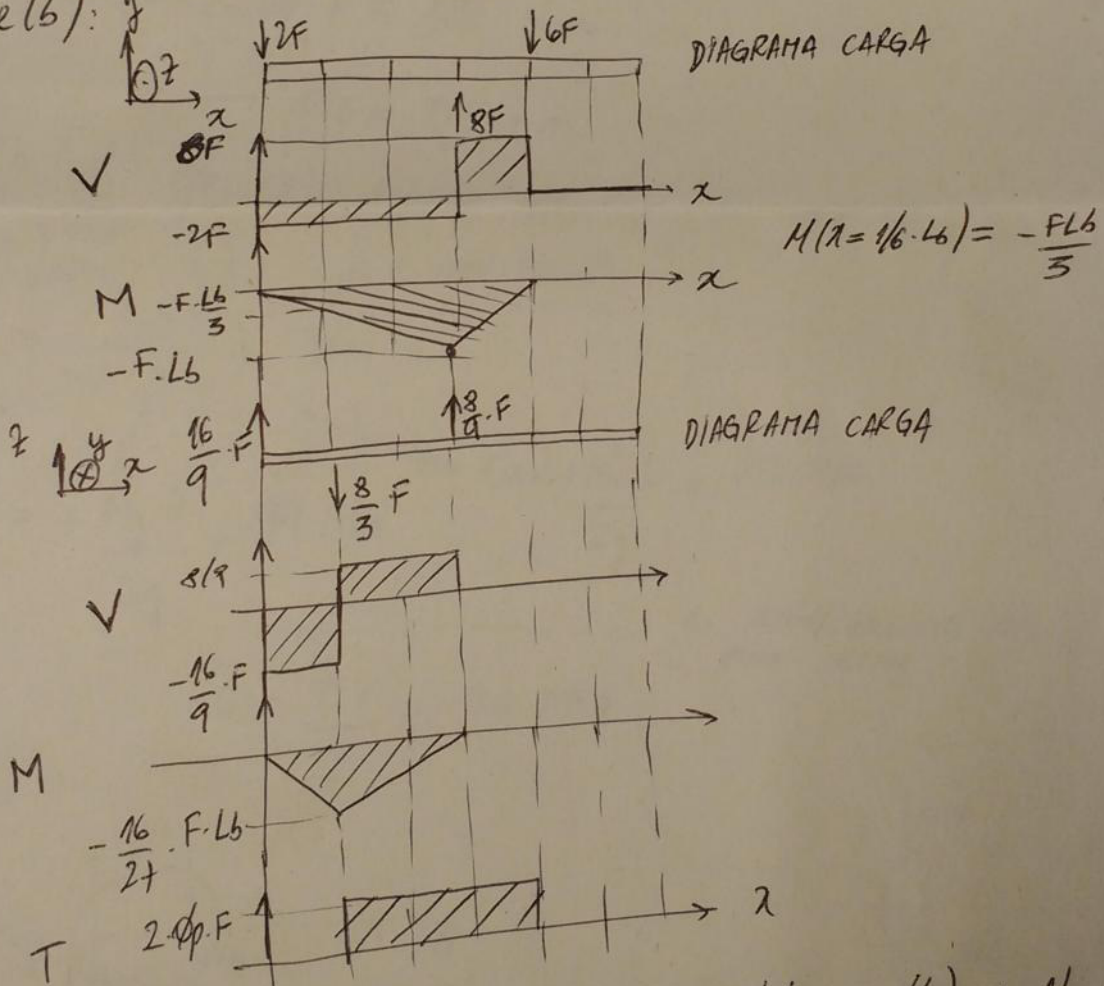 e(b): y
↓2F ↓6F DIAGRAMA CARGA
z
x
↑8F
6F
V
x
-2F
M(x=1/6·Lb) = -FLb/3
M -F·Lb/3
x
-F.Lb
↑8/9·F
z y x 16/9·F DIAGRAMA CARGA
↓8/3 F
8/9
V
-16/9·F
M
-16/27·F·Lb
2·Øp·F x
T